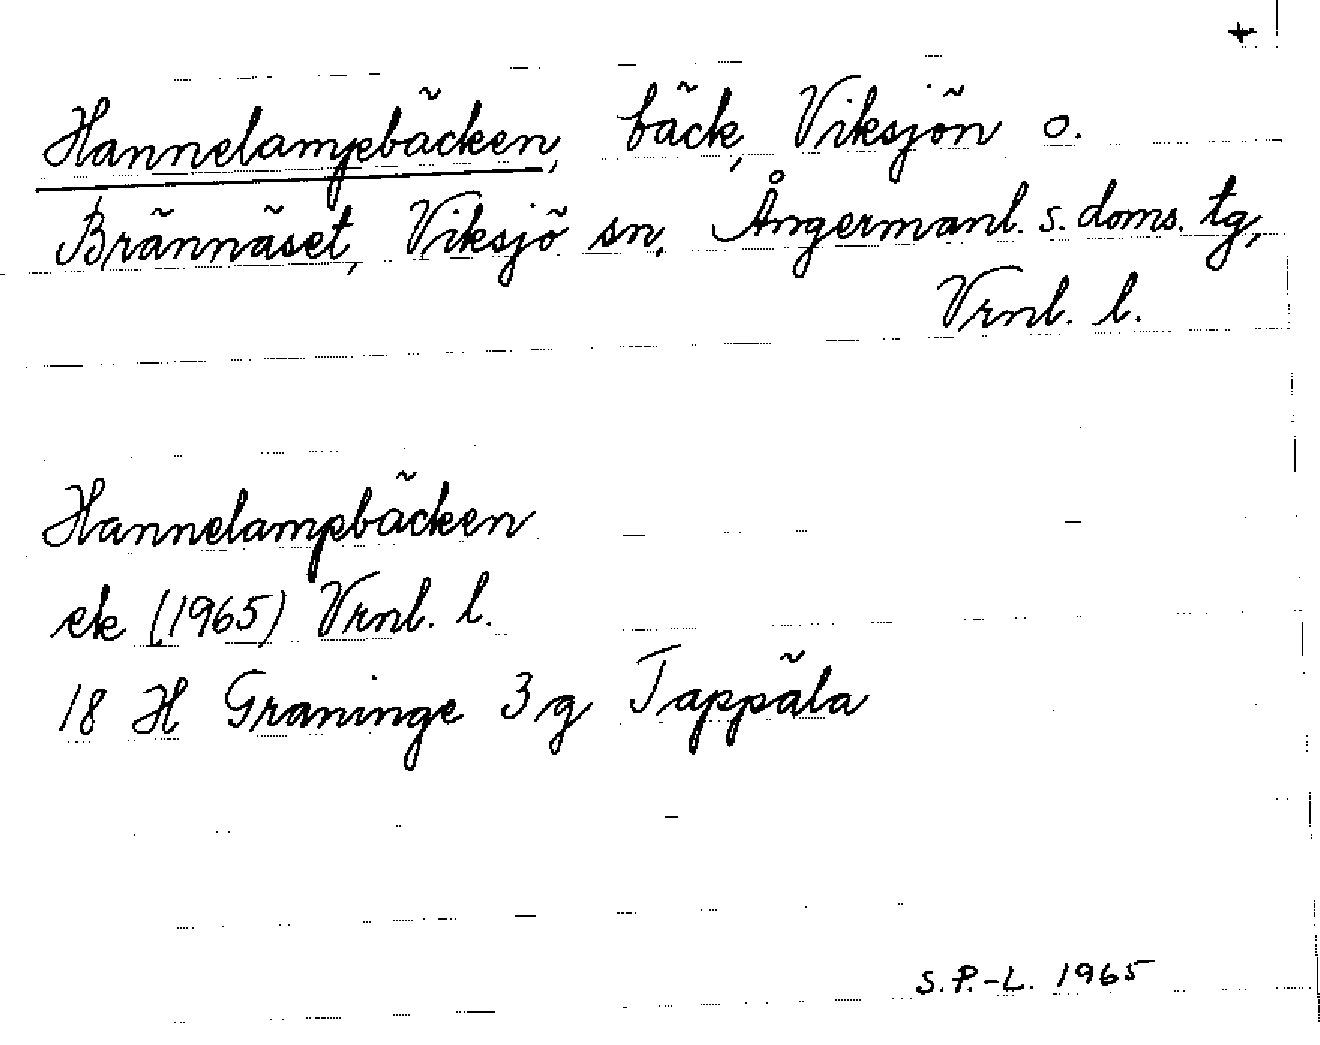 +
Hannelampebäcken, bäck, Viksjön o.
Brännäset, Viksjö sn. Ångermanl. s. doms. tg,
Vrnl. l.
Hannelampbäcken
ek (1965) Vrnl. l.
18 H Graninge 3 g Tappåla
S.P.-L. 1965